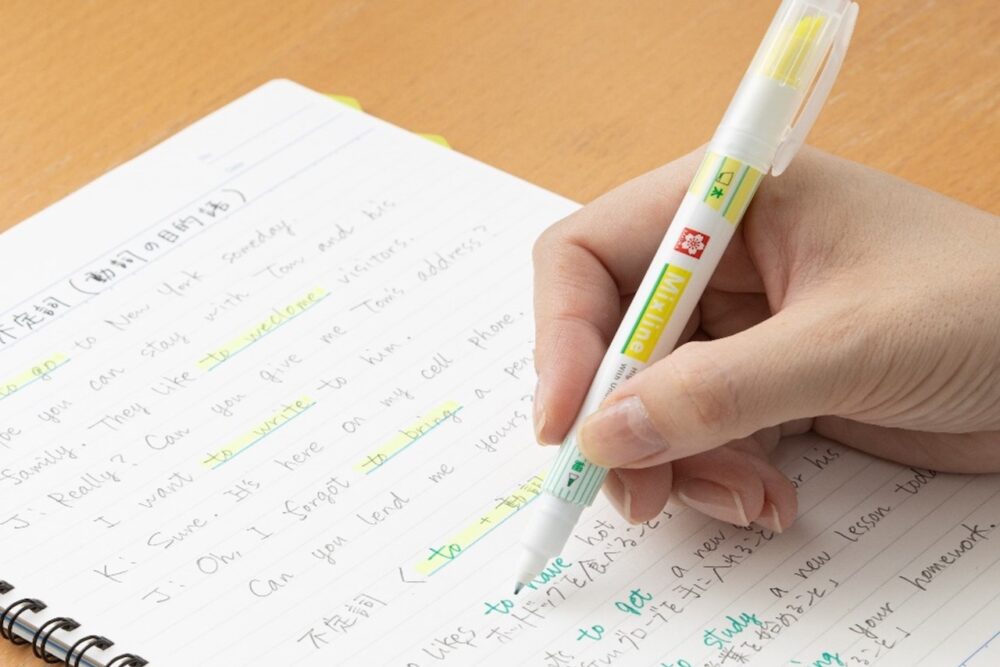 不定詞(動詞の目的語)
to go to New York someday.
pe you can stay with Tom and his
family. They like to weclome visitors.
J: Really? Can you give me Tom's address?
I want to write to him.
K: Sure. It's here on my cell phone.
J: Oh, I forgot to bring a pen
Can you lend me yours?
不定詞 〈to + 動詞
likes to have hot
ホットドッグを食べること」
to get a new
グローブを手に入れること」
to study a new lesson toda
業を始めること」
your homework.
太
Mixline
細